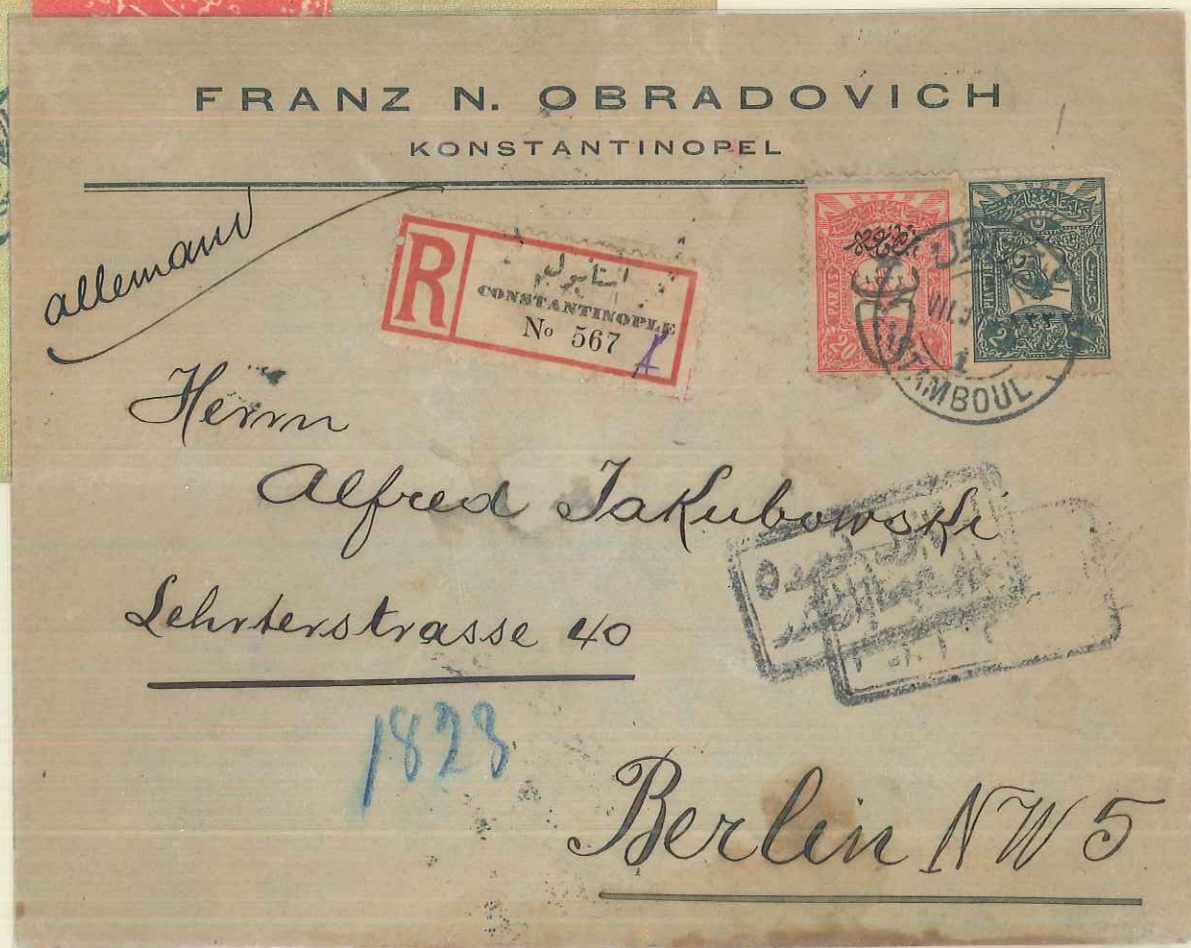 FRANZ N. OBRADOVICH
KONSTANTINOPEL
allemand
R
استانبول
CONSTANTINOPLE
No 567
PARAS
20
2
STAMBOUL
Herrn
Alfred Jakubowski
Lehrterstrasse 40
1823
Berlin NW 5